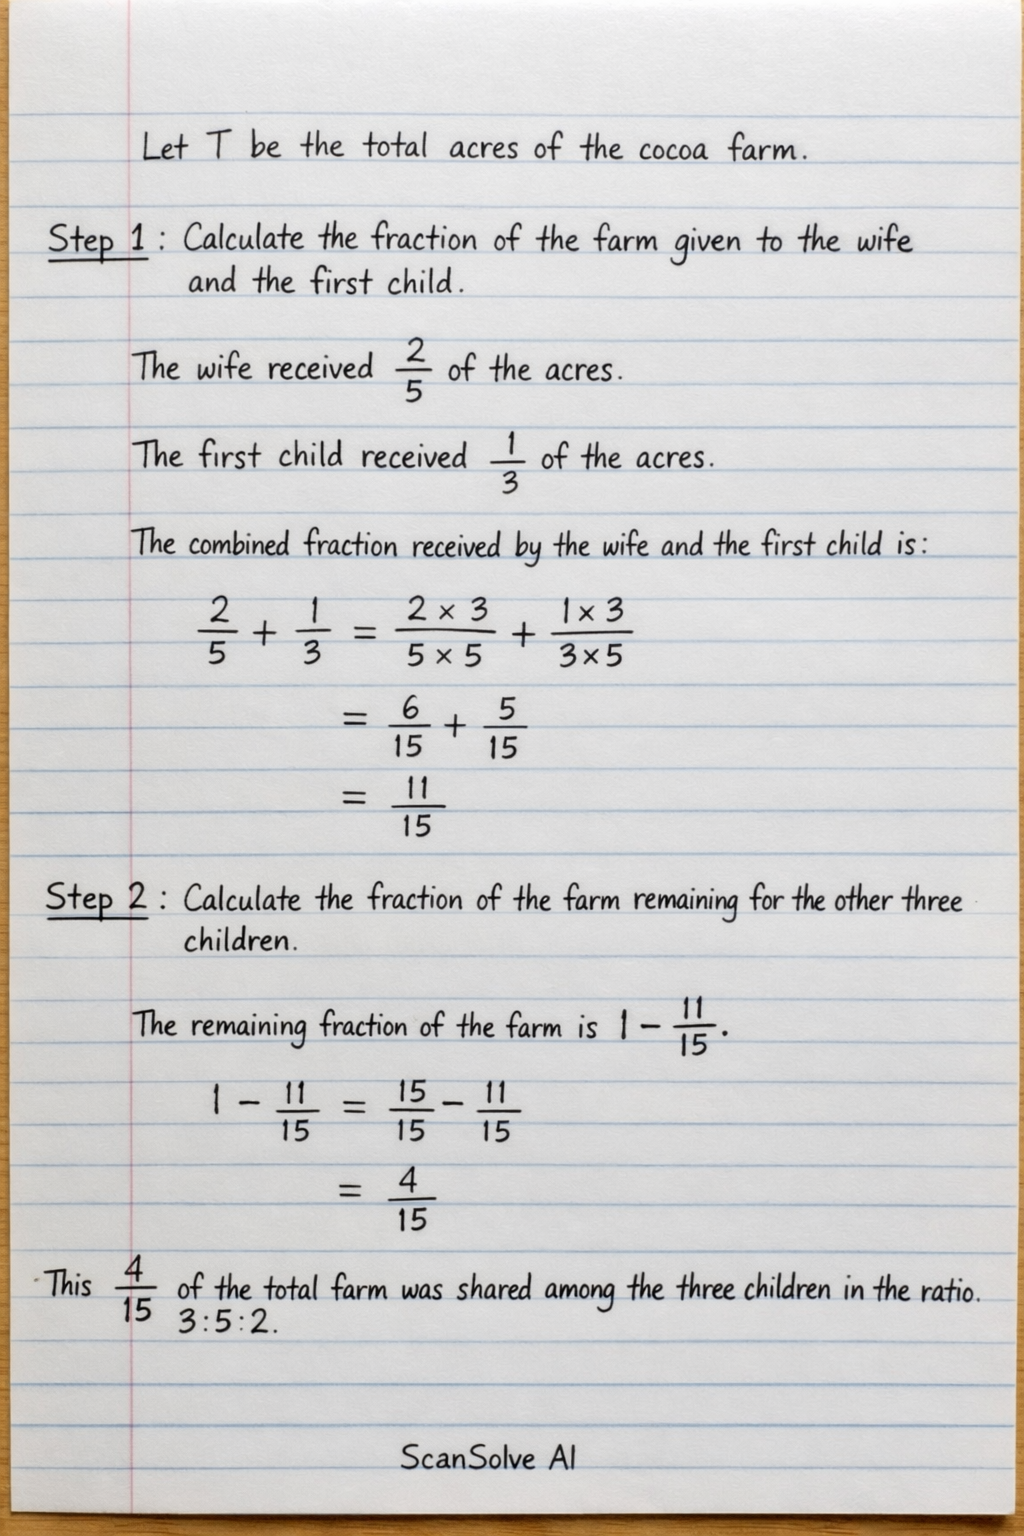 Let T be the total acres of the cocoa farm.
Step 1 : Calculate the fraction of the farm given to the wife
and the first child.
The wife received 2/5 of the acres.
The first child received 1/3 of the acres.
The combined fraction received by the wife and the first child is:
2/5 + 1/3 = (2 × 3)/(5 × 5) + (1 × 3)/(3 × 5)
= 6/15 + 5/15
= 11/15
Step 2 : Calculate the fraction of the farm remaining for the other three
children.
The remaining fraction of the farm is 1 − 11/15.
1 − 11/15 = 15/15 − 11/15
= 4/15
This 4/15 of the total farm was shared among the three children in the ratio.
3:5:2.
ScanSolve AI